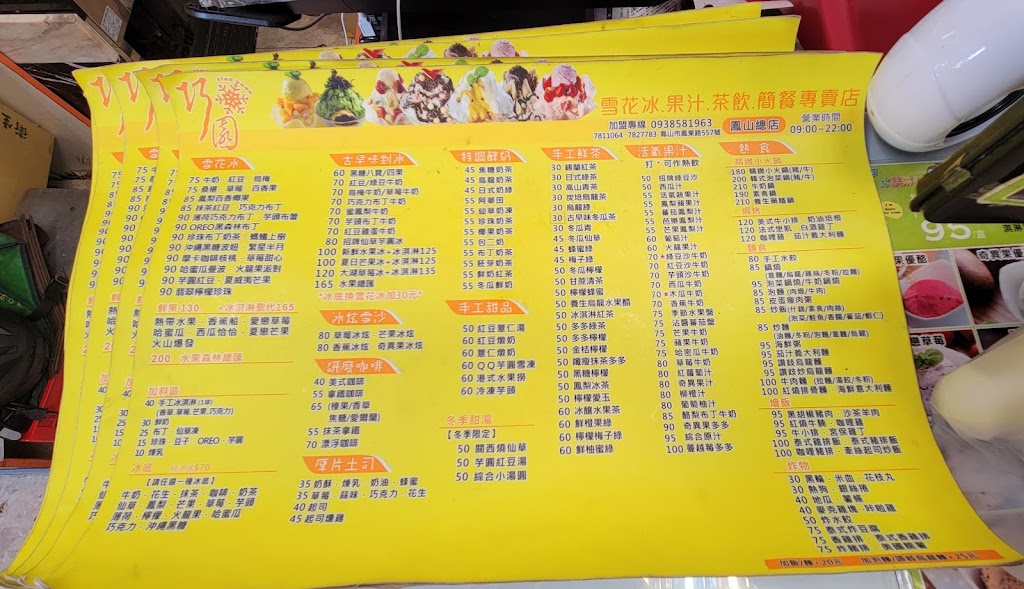 巧園
雪花冰.果汁.茶飲.簡餐專賣店
加盟專線 0938581963
鳳山總店
營業時間
7811064 . 7827783 鳳山市鳳東路557號
09:00~22:00
雪花冰
75 牛奶 紅豆 烏梅
75 桑椹 草莓 百香果
85 鳳梨百香果
85 抹茶紅豆 巧克力布丁
90 薄荷巧克力布丁 芋頭布蕾
90 OREO黑森林布丁
90 珍珠布丁奶茶 螞蟻上樹
90 沖繩黑糖波妞 繁星半月
90 摩卡咖啡核桃 草莓甜心
90 哈蜜瓜優波 火龍果派對
90 芋圓紅豆 夏威夷芒果
90 翡翠檸檬珍珠
鮮果 130 +冰淇淋聖代165
熱帶水果 香蕉船 愛戀草莓
哈蜜瓜 西瓜恰恰 夏戀芒果
火山爆發
200 水果森林總匯
加料區
40 手工冰淇淋(1球)
(香草.草莓.芒果.巧克力)
30 鮮奶
25 布丁 仙草凍
15 珍珠 豆子 OREO 芋圓
10 煉乳
冰底
【請任選一種冰底】
牛奶 花生 抹茶 咖啡 奶茶
仙草 鳳梨 芒果 草莓 芋頭
薄荷 檸檬 火龍果 哈蜜瓜
巧克力 沖繩黑糖
古早味剉冰
60 黑糖八寶/四果
70 紅豆/綠豆牛奶
70 烏梅牛奶/草莓牛奶
70 巧克力布丁牛奶
70 蜜鳳梨牛奶
70 芋頭布丁牛奶
70 紅豆雞蛋牛奶
80 招牌仙草芋圓冰
100 新鮮水果冰+冰淇淋125
100 夏日芒果冰+冰淇淋125
120 大湖草莓冰+冰淇淋135
165 水果總匯
*冰底換雪花冰加30元*
冰炫雪沙
80 草莓冰炫 芒果冰炫
80 香蕉冰炫 奇異果冰炫
研磨咖啡
40 美式咖啡
55 拿鐵咖啡
65 (榛果/香草
焦糖/愛爾蘭)
55 抹茶拿鐵
70 漂浮咖啡
厚片土司
35 奶酥 煉乳 奶油 蜂蜜
35 草莓 蒜味 巧克力 花生
40 起司
45 起司燻雞
特調鮮奶
45 焦糖奶茶
45 烏龍奶茶
45 日式奶綠
55 阿華田
55 仙草奶凍
55 珍珠奶茶
55 椰果奶茶
55 包二奶
55 布丁奶茶
55 胚芽奶茶
55 鮮奶紅茶
55 冬瓜鮮奶
手工甜品
50 紅豆薏仁湯
60 紅豆燉奶
60 薏仁燉奶
60 QQ芋圓雪凍
60 港式水果撈
60 冷凍芋頭
冬季甜湯
【冬季限定】
50 關西燒仙草
50 芋圓紅豆湯
50 綜合小湯圓
手工鮮茶
30 錫蘭紅茶
30 日式綠茶
30 高山青茶
30 炭焙烏龍茶
30 烏龍綠
30 古早味冬瓜茶
30 冬瓜青
45 冬瓜仙草
45 蜂蜜綠
45 梅子綠
50 冬瓜檸檬
50 甘蔗清茶
50 檸檬蜂蜜
50 養生烏龍水果醋
50 冰淇淋紅茶
50 多多綠茶
50 多多檸檬
50 金桔檸檬
50 纖瘦抹茶多多
50 黑糖檸檬
50 鳳梨冰茶
50 檸檬愛玉
60 冰釀水果茶
60 鮮橙果綠
60 檸檬梅子綠
60 鮮柚蜜綠
活氧果汁
打*可作熱飲
50 招牌綠豆沙
50 西瓜汁
55 活氧蔬果汁
55 鳳梨蘋果汁
55 蕃茄鳳梨汁
55 芭樂鳳梨汁
55 芒果鳳梨汁
60 葡萄汁
60 火龍果汁
70 *綠豆沙牛奶
70 紅豆沙牛奶
70 芋頭沙牛奶
70 西瓜牛奶
70 *木瓜牛奶
70 香蕉牛奶
75 季節水果盤
75 沾醬蕃茄盤
75 芒果牛奶
75 蘋果牛奶
75 哈密瓜牛奶
80 草莓果汁
80 紅蘿蔔汁
80 奇異果汁
80 柳橙汁
80 葡萄柚汁
85 酪梨布丁牛奶
90 奇異果多多
95 綜合原汁
100 蔓越莓多多
熱食
精緻小火鍋
180 精緻小火鍋(豬/牛)
200 韓式泡菜鍋(豬/牛)
210 牛奶鍋
190 素食鍋
210 養生藥膳鍋
焗烤
120 美式牛小排 奶油培根
120 法式里肌 白酒雞丁
120 咖哩雞 茄汁義大利麵
麵食
80 手工水餃
85 鍋燒
(意麵/烏龍/雞絲/冬粉/拉麵)
95 泡菜鍋燒/牛奶鍋燒
85 泡麵(肉燥/牛肉)
85 皮蛋瘦肉粥
85 炒飯(什錦/素食/肉絲)
(泡菜/鮭魚/香腸/蕃茄/蝦仁)
85 炒麵
(油麵/冬粉/泡麵/意麵/烏龍)
95 海鮮粥
95 茄汁義大利麵
95 讚岐烏龍麵
100 牛肉麵 (拉麵/湯餃/冬粉)
100 紅燒排骨麵 海鮮意大利麵
燴飯
95 黑胡椒豬肉 沙茶羊肉
95 紅燒牛腩 咖哩雞
95 牛小排 宮保雞丁
100 泰式雞排飯 泰式豬排飯
100 咖哩豬排 牽絲起司炒飯
炸物
30 黑輪 米血 花枝丸
30 熱狗 銀絲捲
40 地瓜 薯條
40 麥克雞塊 咔啦雞
50 炸水餃
75 泰式炸豆腐
75 香雞排 泰式香雞排
75 炸豬排 美國脆薯
加飯/麵+20元
95/盒